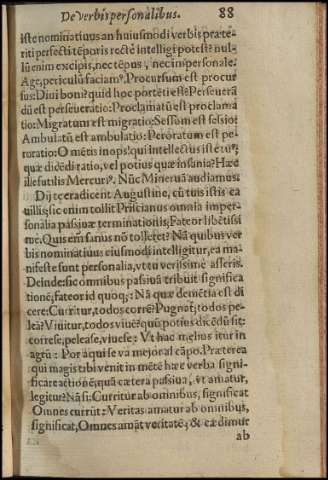 De verbis personalibus. 88
iste nominatiuus an huiusmodi verbis præte-
riti perfecti tẽporis rectè intelligi potest? nul-
lũ enim excipis, nec tẽpus, nec impersonale.
Age, periculũ faciam⁹. Procursum est procur
sus: Dij boni? quid hoc portẽti est? Perseuerã
dũ est perseueratio: Proclamatũ est proclama
tio: Migratum est migratio: Sessum est sessio:
Ambulatũ est ambulatio: Peroratum est pe-
roratio: O mẽtis inops! qui intellectus iste tu⁹,
quæ dicẽdi ratio, vel potius quæ insania? Hæc
ille futilis Mercuri⁹. Nũc Mineruã audiamus.
Dij te eradicent Augustine, cũ tuis istis ca
uillis; sic enim tollit Priscianus omnia imper-
sonalia passiuæ terminationis, Fateor libẽtissi
me. Quis em̃ sanus nõ tolleret? Nã quibus ver
bis nominatiuus eiusmodi intelligitur, ea ma-
nifeste sunt personalia, vt tu verissime asseris.
Deinde sic omnibus passiuã tribuit significa
tionẽ, fateor id quoq;: Nã quæ demẽtia est di
cere: Curritur, todos corrẽ? Pugnat, todos pe-
leã? Viuitur, todos viuẽ? quũ potius dicẽdũ sit:
correse, pelease, viuese: Vt hac melius itur in
agrũ: Por aqui se va mejor al cãpo. Præterea
qui magis tibi venit in mẽtẽ hæc verba signi-
ficare actionẽ, quã cætera passiua, vt amatur,
legitur? Nã si: Curritur ab omnibus, significat
Omnes currũt: Veritas amatur ab omnibus,
significat, Omnes amãt veritatẽ; & eædimur
ab